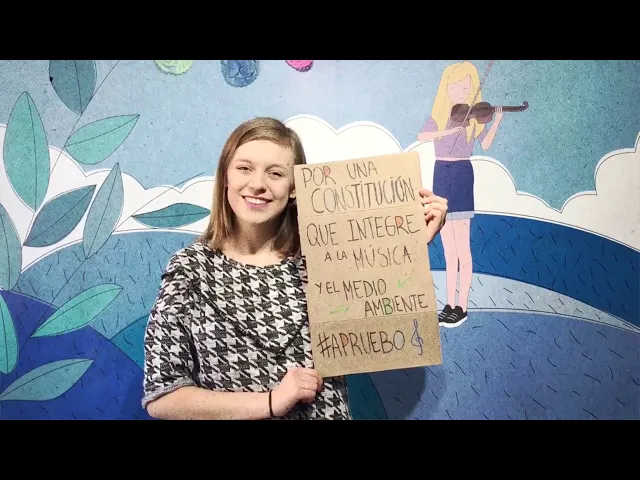 POR UNA
CONSTITUCIÓN
QUE INTEGRE
A LA MÚSICA
Y EL MEDIO
AMBIENTE
#APRUEBO